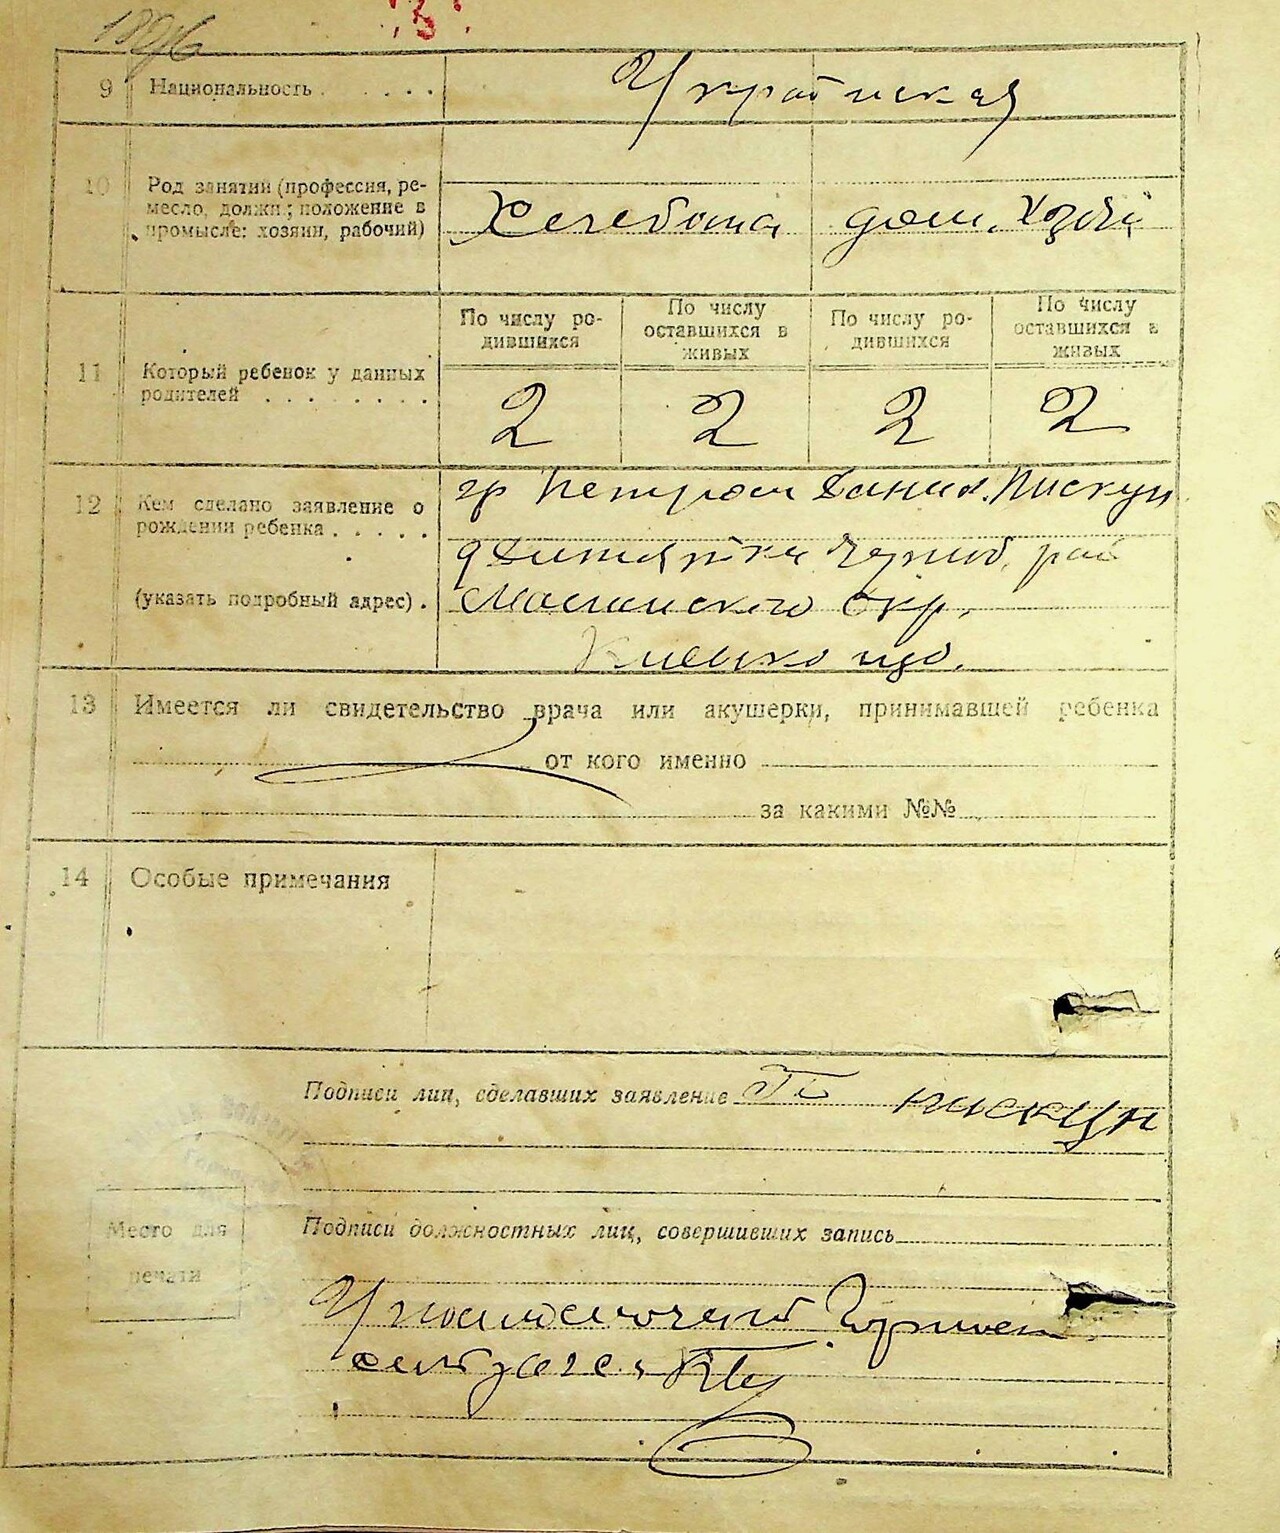 1896
"З".
9 Национальность . . . . . Украінская
10 Род занятий (профессия, ре-
месло, должн.; положение в
промысле: хозяин, рабочий)
Хлебопа дом. Хозяй
По числу ро-
дившихся
По числу
оставшихся в
живых
По числу ро-
дившихся
По числу
оставшихся в
живых
11 Который ребенок у данных
родителей . . . . . . . .
2 2 2 2
12 Кем сделано заявление о
рождении ребенка . . . . .
(указать подробный адрес) .
гр Петром Данил. Пискун
д Дитятки Черноб. рай
окр.
13 Имеется ли свидетельство врача или акушерки, принимавшей ребенка
от кого именно
за какими №№
14 Особые примечания
Подписи лиц, сделавших заявление П пискун
Подписи должностных лиц, совершивших запись
Место для
печати
Уполномочений